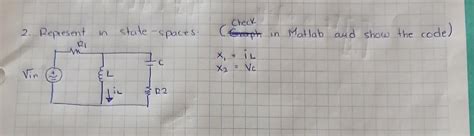 Check
2. Represent in state-spaces (Graph in Matlab and show the code)
R1
x₁ = iL
C
x₂ = Vc
Vin
L
R2
iL